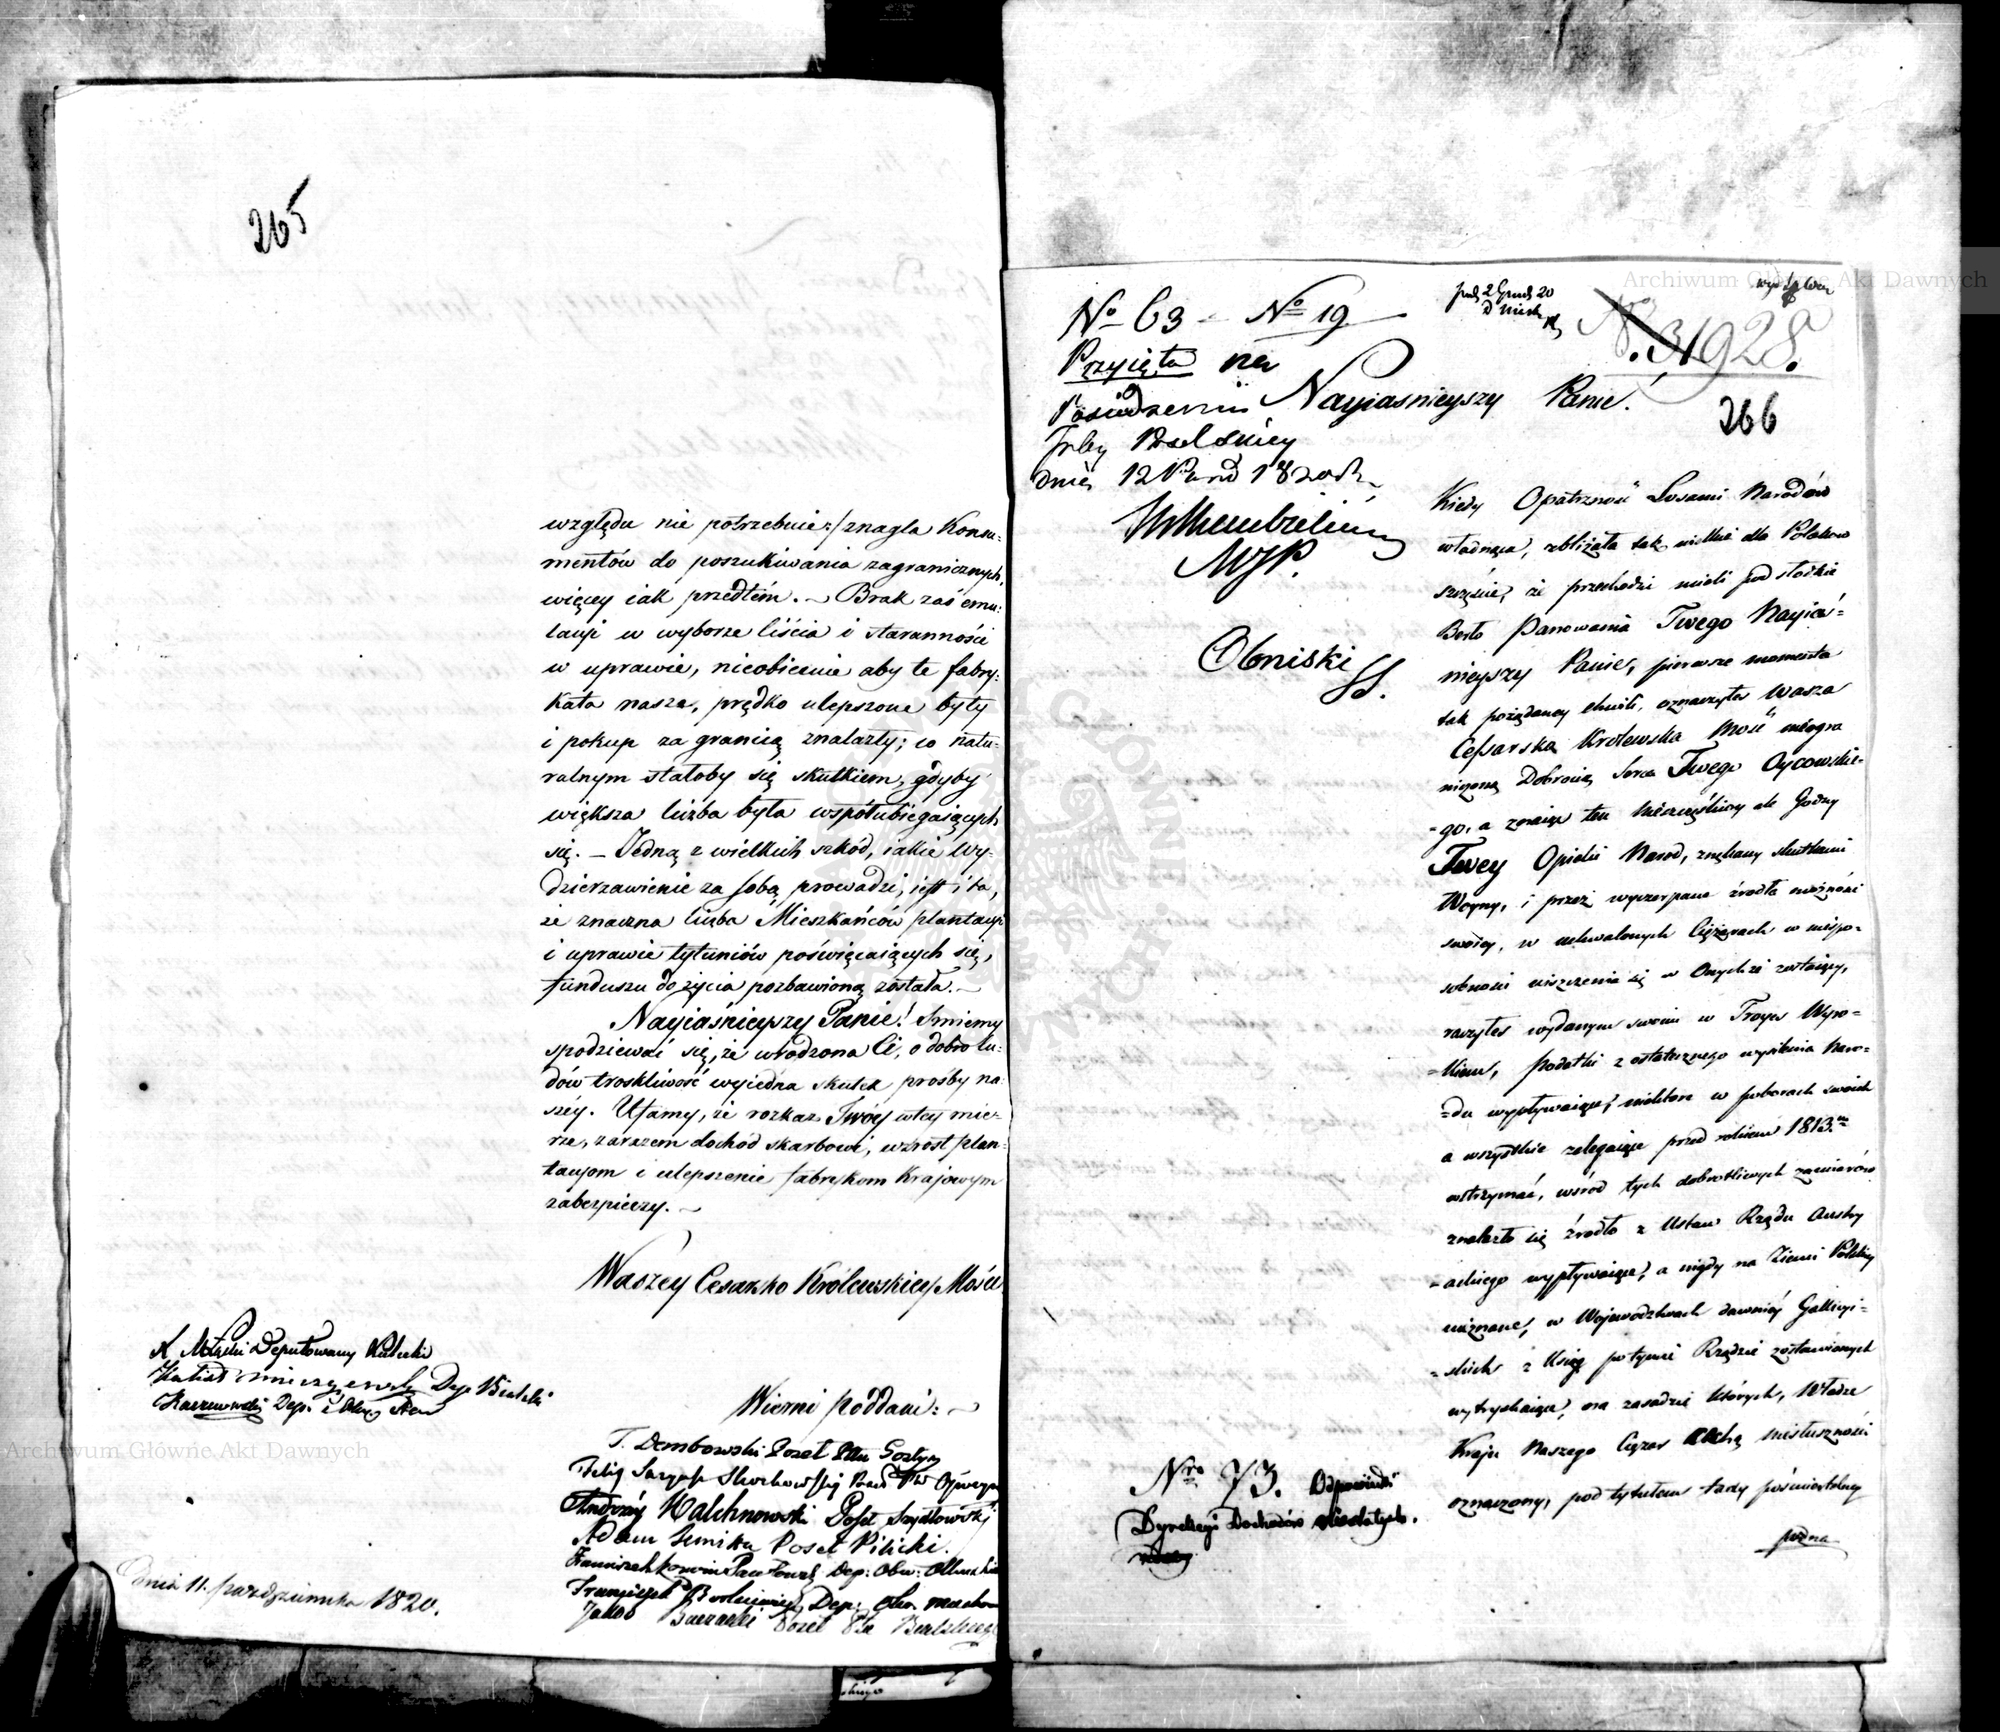 265
względu nie potrzebnie:/ znagla Konsu=
mentów do poszukiwania zagranicznych,
więcey iak przedtém. ~ Brak zaś emu=
lacyi w wyborze liścia i staranności
w uprawie, nieobiecuie aby te fabry=
kata nasze, prędko ulepszone były
i pokup za granicą znalazły; co natu=
ralnym stałoby się skutkiem, gdyby
większa liczba była współubiegaiących
się. – Jedną z wielkich szkód, iakie Wy=
dzierzawienie za sobą prowadzi, iest i ta,
że znaczna liczba Mieszkańców plantacyi
i uprawie tytuniów poświęcaiących się,
funduszu do życia pozbawioną została. ~
Nayiaśnieyszy Panie! Smiemy
spodziewać się, że wrodzona Ci, o dobro lu=
dów troskliwość wyiedna skutek prośby na=
széy. Ufamy, że rozkaz Twóy w tey mie=
rze, zarazem dochód skarbowi, wzrost plan=
tacyom i ulepszenie fabrykom Krajowym
zabezpieczy. ~
Waszey Cesarsko Królewskiey Mości
Wierni poddani: ~
Deputowany
T. Dembowski Poseł Ptu Gostyn
Andrzéy Walchnowski Poseł Szydłowski
Adam Poseł Pilicki.
Franciszek Dep: Obw: Olkuski
Franciszek Dep:
Jakób Poseł
dnia 11. października 1820.
Archiwum Główne Akt Dawnych
No 63 – No 19
Przyięta na
Posiedzeniu
Izby Poselskiey
dnia 12 Paźd 1820 R
MJP.
Obniski
SS.
No. 3/1928.
266
Nayiasnieyszy Panie!
Kiedy Opatrzność Losami Narodów
władnąca, zbliżała tak wielkie dla Polaków
szczęście, że przechodzić mieli pod słodkie
Berło Panowania Twego Nayiaś=
nieyszy Panie, pierwsze momenta
tak pożądaney chwili, oznaczyła Wasza
Cesarska Królewska Mość nieogra
niczoną Dobrocią Serca Twego Oycowskie=
=go, a znaiąc ten nieszczęśliwy ale Godny
Twey Opieki Naród, znękany skutkami
Woyny, i przez wyczerpane źrodła możności
swoiey, w uchwalonych Ciężarach w niespo=
sobności uiszczenia się w Onychże zostaiący,
raczyłeś wydanym swoim w Troyes Wyro=
=kiem, Podatki z ostatecznego wysilenia Naro=
=du wypływaiące, niektóre w poborach swoich
a wszystkie zalegaiące przed rokiem 1813.m
wstrzymać, wśród tych dobrotliwych zamiarów
znalazło się źrodło z Ustaw Rządu Austry
=ackiego wypływaiące, a nigdy na Ziemi Polskiey
nieznane, w Województwach dawniéy Gallicyi=
=skich z Ksiąg po tymże Rządzie zostawionych
wytryskaiące, na zasadzie których, Władze
Kraju Naszego Ciężar cechą niesłuszności
oznaczony, pod tytułem taxy pośmiertelney
Nro 73. Odpowiedź
Dyrekcyi Dochodów niestałych.
Archiwum Główne Akt Dawnych